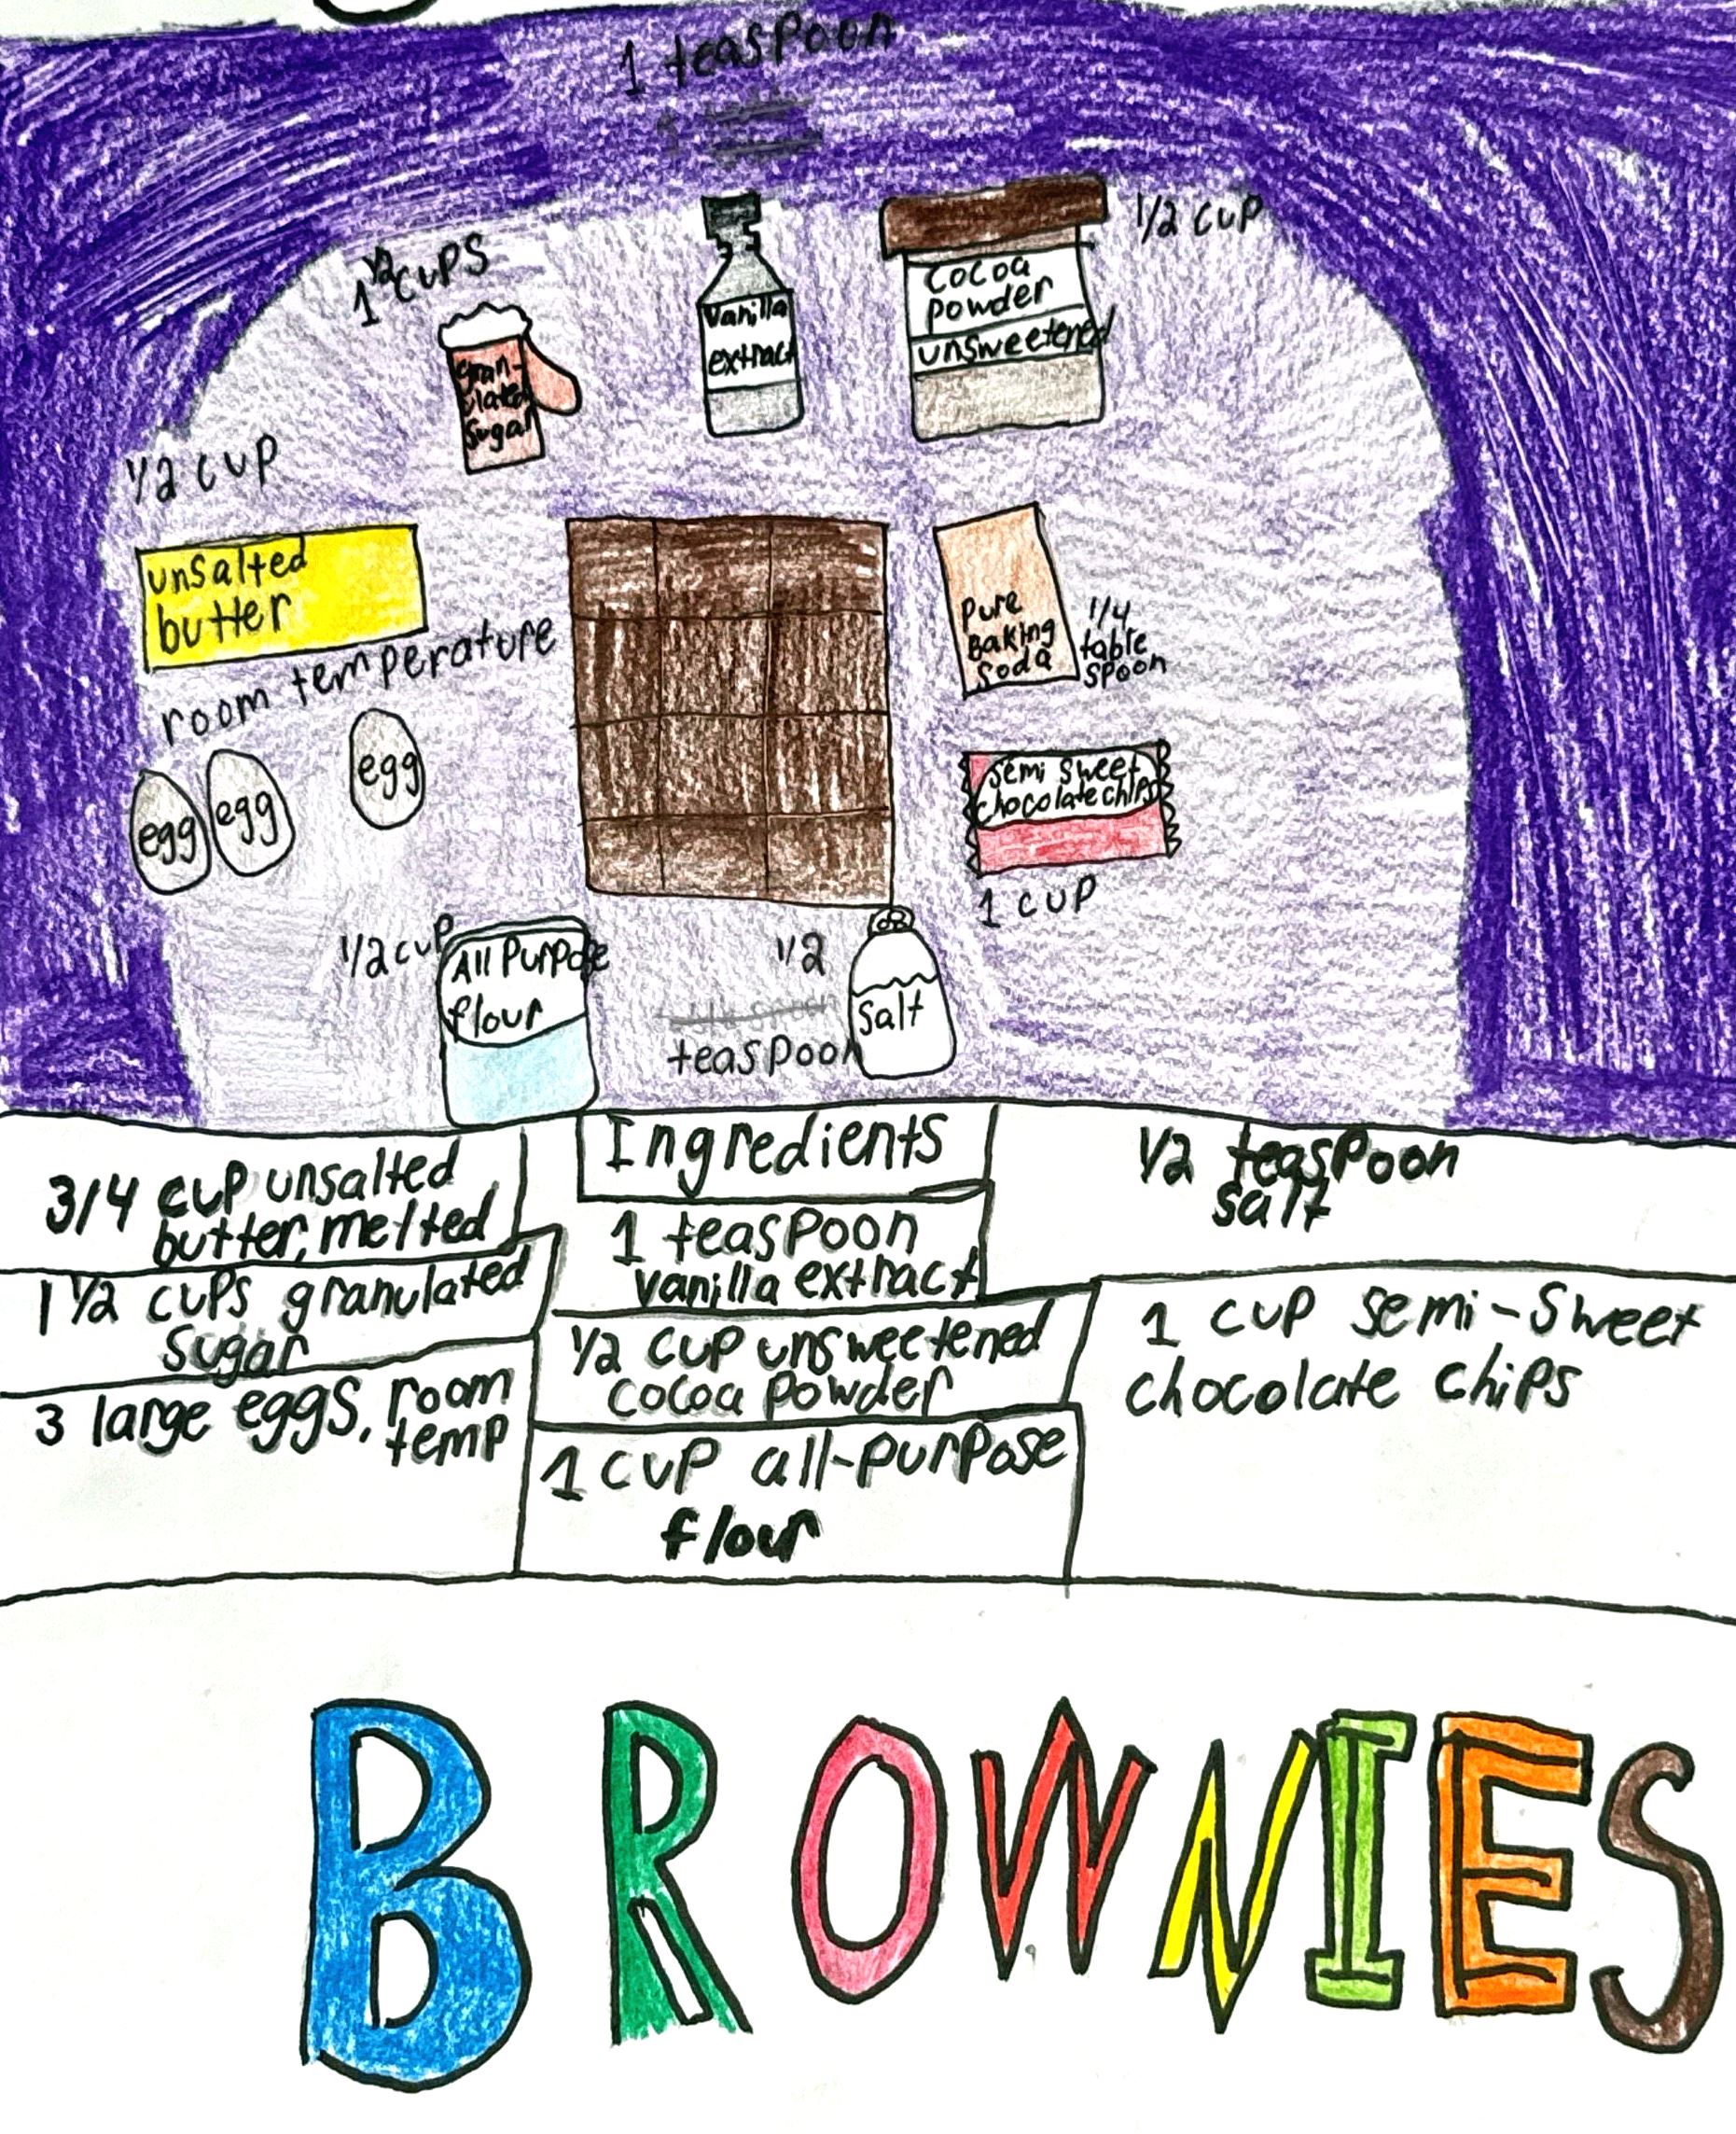 1 teaspoon
1 1/2 cups
Vanilla
extract
Cocoa
Powder
unsweetened
1/2 cup
gran-
ulated
Sugar
1/2 cup
unsalted
butter
room temperature
egg
egg
egg
Pure
Baking
Soda
1/4
table
spoon
Semi Sweet
chocolate chips
1 cup
1/2 cup
All Purpose
flour
1/2
teaspoon
Salt
Ingredients
3/4 cup unsalted
butter, melted
1 1/2 cups granulated
sugar
3 large eggs, room
temp
1 teaspoon
vanilla extract
1/2 cup unsweetened
cocoa powder
1 cup all-purpose
flour
1/2 teaspoon
salt
1 cup semi-sweet
chocolate chips
BROWNIES